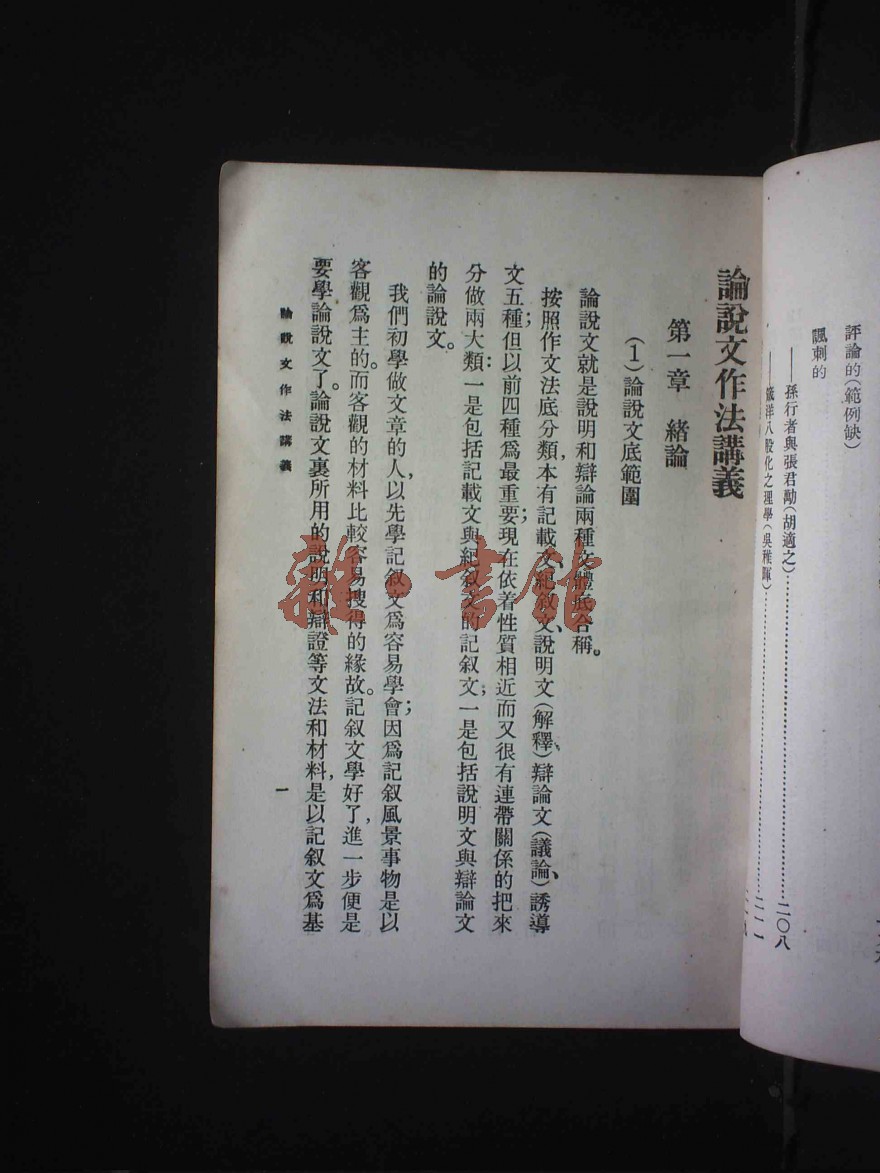 評論的(範例缺)
諷刺的
——孫行者與張君勱(胡適之)……二〇八
——箴洋八股化之理學(吳稚暉)……二一一
論說文作法講義
第一章 緒論
(1)論說文底範圍
論說文就是說明和辯論兩種文體底合稱。
按照作文法底分類,本有記載文、紀叙文、說明文(解釋)、辯論文(議論)、誘導
文五種;但以前四種爲最重要;現在依着性質相近而又很有連帶關係的把來
分做兩大類:一是包括記載文與紀叙文的記叙文;一是包括說明文與辯論文
的論說文。
我們初學做文章的人,以先學記叙文爲容易學會;因爲記叙風景事物是以
客觀爲主的。而客觀的材料比較容易搜得的緣故。記叙文學好了,進一步便是
要學論說文了。論說文裏所用的說明和辯證等文法和材料,是以記叙文爲基
論說文作法講義
一
雜·書館